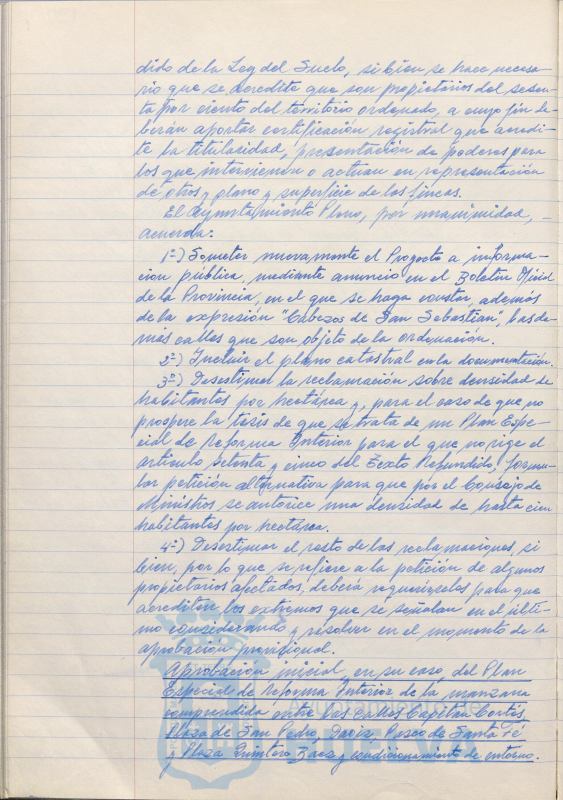 dido de la Ley del Suelo, si bien se hace necesa-
rio que se acredite que son propietarios del sesen-
ta por ciento del territorio ordenado, a cuyo fin de-
berán aportar certificación registral que acredi-
te la titularidad, presentación de poderes para
los que intervienen o actuan en representación
de otros y plano y superficie de las fincas.
El Ayuntamiento Pleno, por unanimidad, -
acuerda:
1º-) Someter nuevamente el Proyecto a informa-
cion pública, mediante anuncio en el Boletin Oficial
de la Provincia, en el que se haga constar, además
de la expresión "Cabezos de San Sebastian", las de-
más calles que son objeto de la ordenación.
2º-) Incluir el plano catastral en la documentación.
3º-) Desestimar la reclamación sobre densidad de
habitantes por hectárea y, para el caso de que no
prospere la tesis de que se trata de un Plan Espe-
cial de Reforma Interior para el que no rige el
artículo setenta y cinco del Texto Refundido, formu-
lar petición alternativa para que por el Consejo de
Ministros se autorice una densidad de hasta cien
habitantes por hectárea.
4º-) Desestimar el resto de las reclamaciones, si
bien, por lo que se refiere a la petición de algunos
propietarios afectados, deberá requerírseles para que
acrediten los extremos que se señalan en el últi-
mo considerando y resolver en el momento de la
aprobación provisional.
Aprobación inicial, en su caso, del Plan
Especial de Reforma Interior de la manzana
comprendida entre las calles Capitan Cortés,
Plaza de San Pedro, Daoiz, Paseo de Santa Fé
y Plaza Quintero Baez y condicionamiento de entorno.